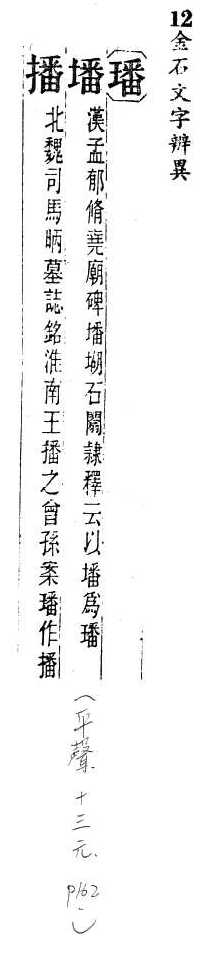 12金石文字辨異
璠
墦 漢孟郁脩堯廟碑墦堋石闕隸釋云以墦爲璠
播 北魏司馬昞墓誌銘淮南王播之曾孫案璠作播
(平聲 十三元. P162)